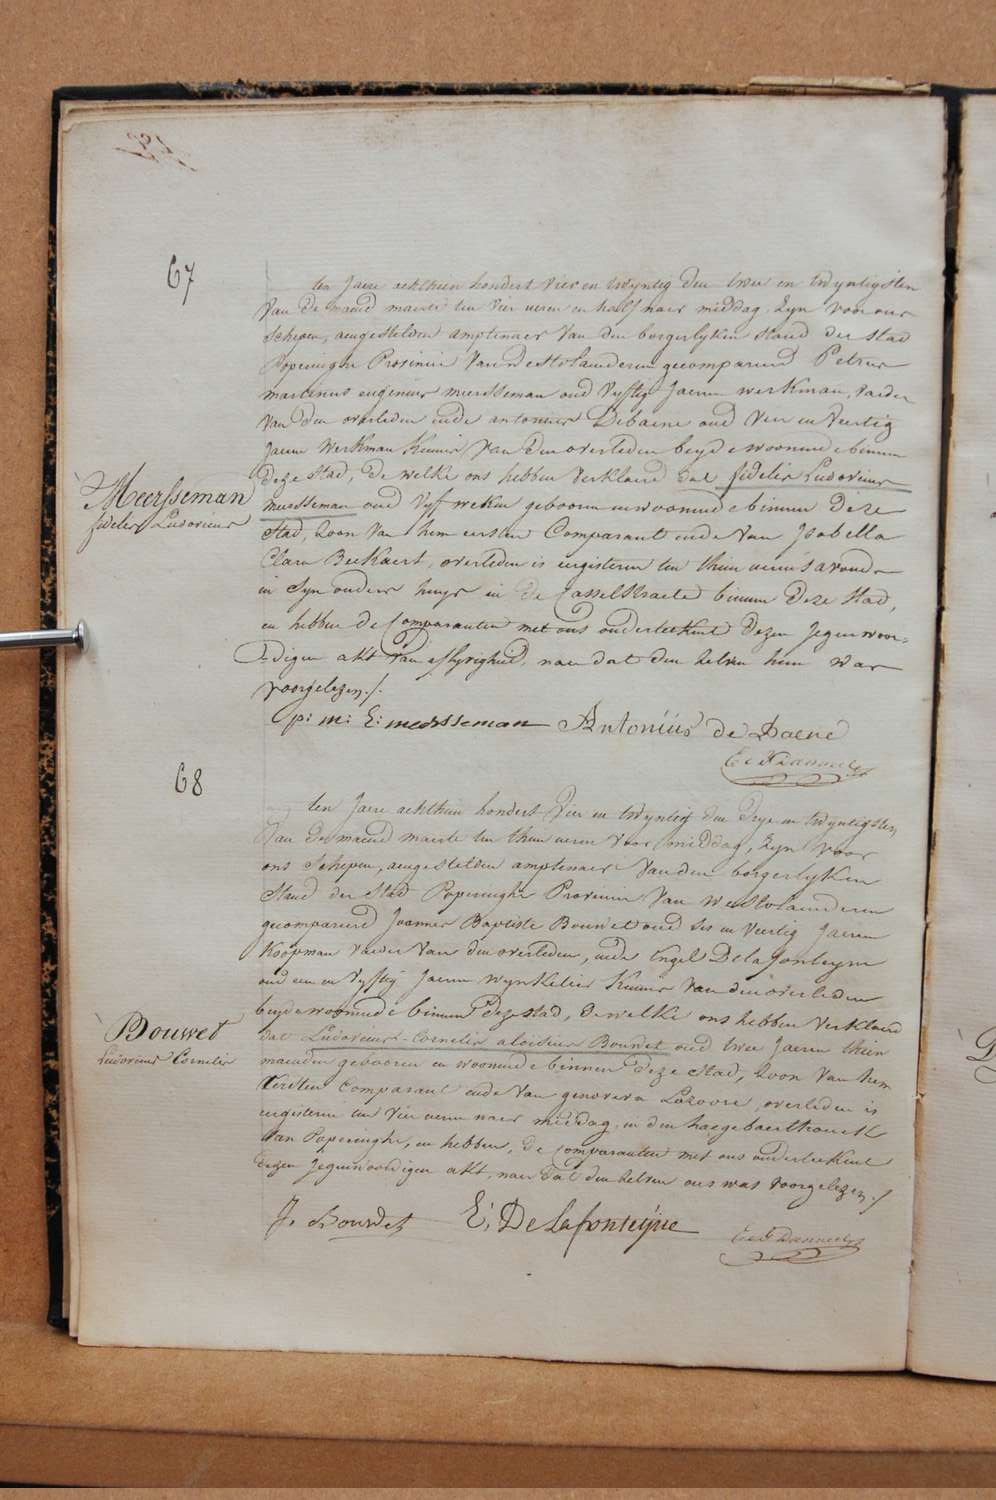 67
ten Jaere achthien hondert vier en twyntig den twee en twyntigsten
van de maend maerte ten vier ueren en half naer middag, zyn voor ons
schepen, aengestelden amptenaer van den borgerlyken stand der stad
Poperinghe Provincie van Westvlaenderen gecompareerd Petrus
martinus eugenius meersseman oud vyftig Jaeren werkman, vader
van den overleden ende antonius Debaene oud vier en veertig
Jaeren werkman kennis van den overleden beyde woonende binnen
deze stad, de welke ons hebben verklaerd dat fidelis Ludovicus
Meersseman
fidelis Ludovicus
meersseman oud vyf weken gebooren en woonende binnen deze
stad, zoon van hem eersten Comparant ende van Isabella
Clara Beekaert, overleden is eergisteren ten thien ueren s'avonds
in syn ouders huys in de Casselstraete binnen deze stad,
en hebben de Comparanten met ons onderteekent dezen Jegenwoor-
digen akt van aflyvigheid, naer dat den zelven hun was
voorgelezen ./.
p: m: E: meersseman Antoniüs de Baene
68
ten Jaere achthien hondert vier en twyntig den drye en twyntigsten
van de maend maerte ten thien ueren voor middag, zyn voor
ons schepen, aengestelden amptenaer van den borgerlyken
stand der stad Poperinghe Provincie van Westvlaenderen
gecompareerd Joannes Baptiste Bouwet oud ses en veertig Jaeren
koopman vader van den overleden, ende Engel Delafonteyne
oud een en vyftig Jaeren wynkelier kennis van den overleden
beyde woonende binnen deze stad, de welke ons hebben verklaerd
Bouwet
Ludovicus Cornelis
dat Ludovicus Cornelis aloisius Bouwet oud twee Jaeren thien
maenden gebooren en woonende binnen deze stad, zoon van hem
Eersten Comparant ende van genoveva Lazoore, overleden is
eergisteren ten vier ueren naer middag in den haegebaerthouck
van Poperinghe, en hebben, de Comparanten met ons onderteekent
dezen Jegenwoordigen akt, naer dat den zelven ons was voorgelezen ./.
J. Bouwet E: De Lafonteÿne